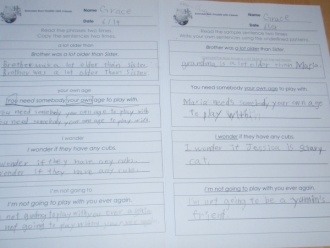 Name Grace
Date
Read the phrases two times.
Copy the sentences two times.
a lot older than
Brother was a lot older than Sister.
Brother was a lot older than Sister
Brother was a lot older than Sister
your own age
You need somebody your own age to play with.
You need somebody your own age to play with
you need somebody your own age to play with
I wonder
I wonder if they have any cubs.
wonder if they have any cubs.
wonder if they have any cubs.
I'm not going to
I'm not going to play with you ever again.
not going to play
Name Grace
Date
Read the sample sentence two times.
Write your own sentences using the underlined
Brother was a lot older than Sister.
is a lot older than
You need somebody your own age to play with.
need somebody your own age
to play with.
I wonder if they have any cubs.
I wonder if Jessica is scary
cat.
I'm not going to play with you ever again.
I'm not going to be a
friend.